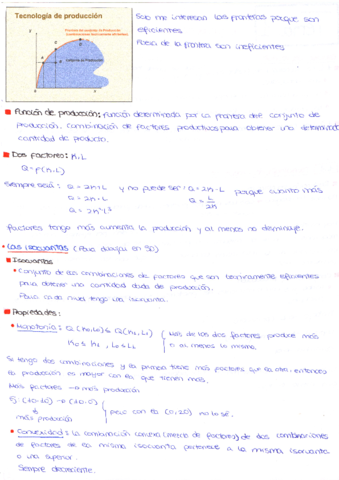 Tecnología de producción
Solo me interesan las fronteras porque son
eficientes
Fuera de la frontera son ineficientes
Función de producción: función determinada por la frontera del conjunto de
producción. Combinación de factores productivos para obtener una determinada
cantidad de producto.
Dos factores: K, L
Q = F(K, L)
Siempre será: Q = 2K + L y no puede ser: Q = 2K - L porque cuanto más
Q = 2K · L Q = L/2K
factores tengo más aumenta la producción y al menos no disminuye.
Las isocuantas (Para dibujar en 3D)
Isocuantas
Conjunto de las combinaciones de factores que son técnicamente eficientes
para obtener una cantidad dada de producción.
Para cada nivel tengo una isocuanta.
Propiedades:
Monotonía: Más de los dos factores produce más
o al menos lo mismo.
Si tengo dos combinaciones y la primera tiene más factores que la otra, entonces
la producción es mayor con la que tienen más.
Más factores → más producción
pero con el (0,20) no lo sé.
más producción
Convexidad: la combinación convexa (mezcla de factores) de dos combinaciones
de factores de la misma isocuanta pertenece a la misma isocuanta
o una superior.
Siempre decreciente.